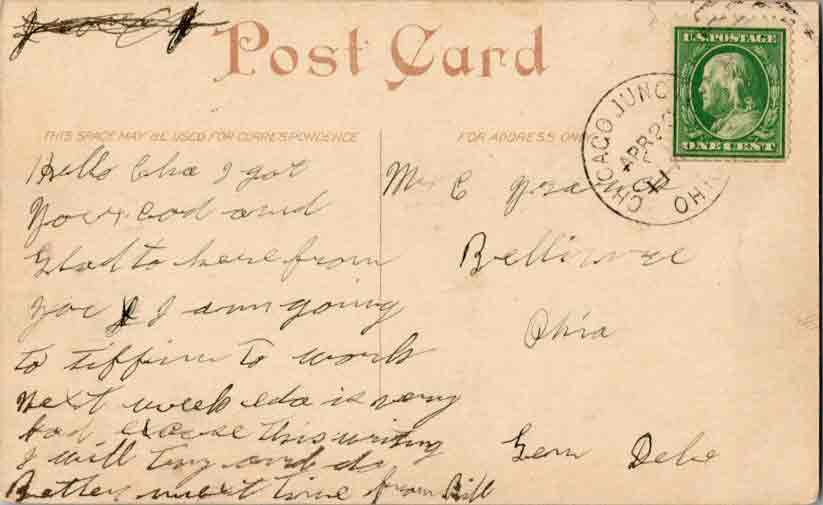 Post Card
U.S. POSTAGE
ONE CENT
CHICAGO JUNC
APR 2
OHIO
THIS SPACE MAY BE USED FOR CORRESPONDENCE
FOR ADDRESS ON
Hello Cha I got
your cod and
glad to here from
you I am going
to tiffin to work
next week eda is very
bad excuse this writing
I will try and do
Better next time from Bill
Mr C
Bellivue
Ohio